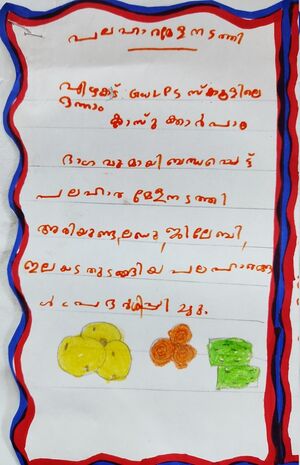 പലഹാരമേളനടത്തി
പിഴക് ഗവ.LPS സ്കൂളിലെ
ഒന്നാം
ക്ലാസുക്കാർപാഠ
ഭാഗവുമായിബന്ധപ്പെട്ട്
പലഹാരമേളനടത്തി
അരിയുണ്ട,ലഡു,ജിലേബി,
ഇലയടതുടങ്ങിയ പലഹാരങ്ങ
ൾ പ്രദർശിപ്പിച്ചു.